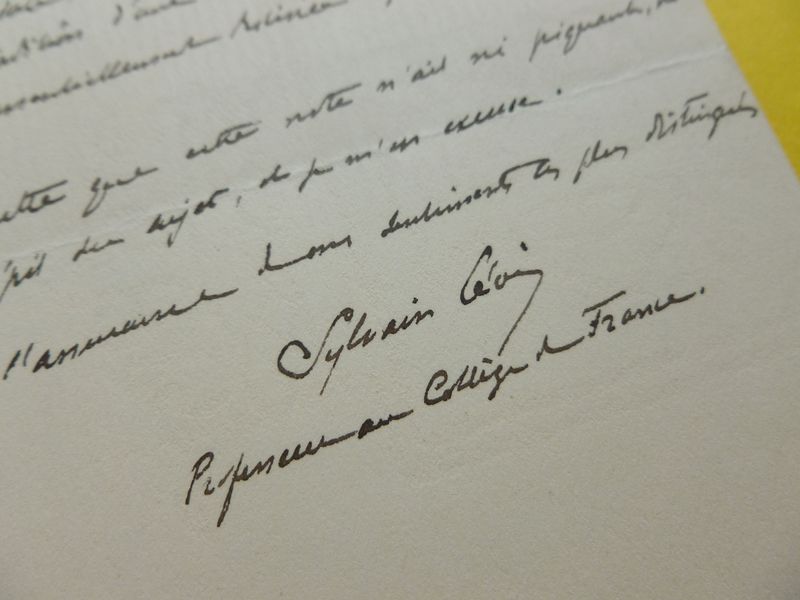 d'une
essentiellement
que cette note n'ait ni piquant,
du sujet, et je m'en excuse.
l'assurance de mes sentiments les plus distingués
Sylvain Lévi
Professeur au Collège de France.